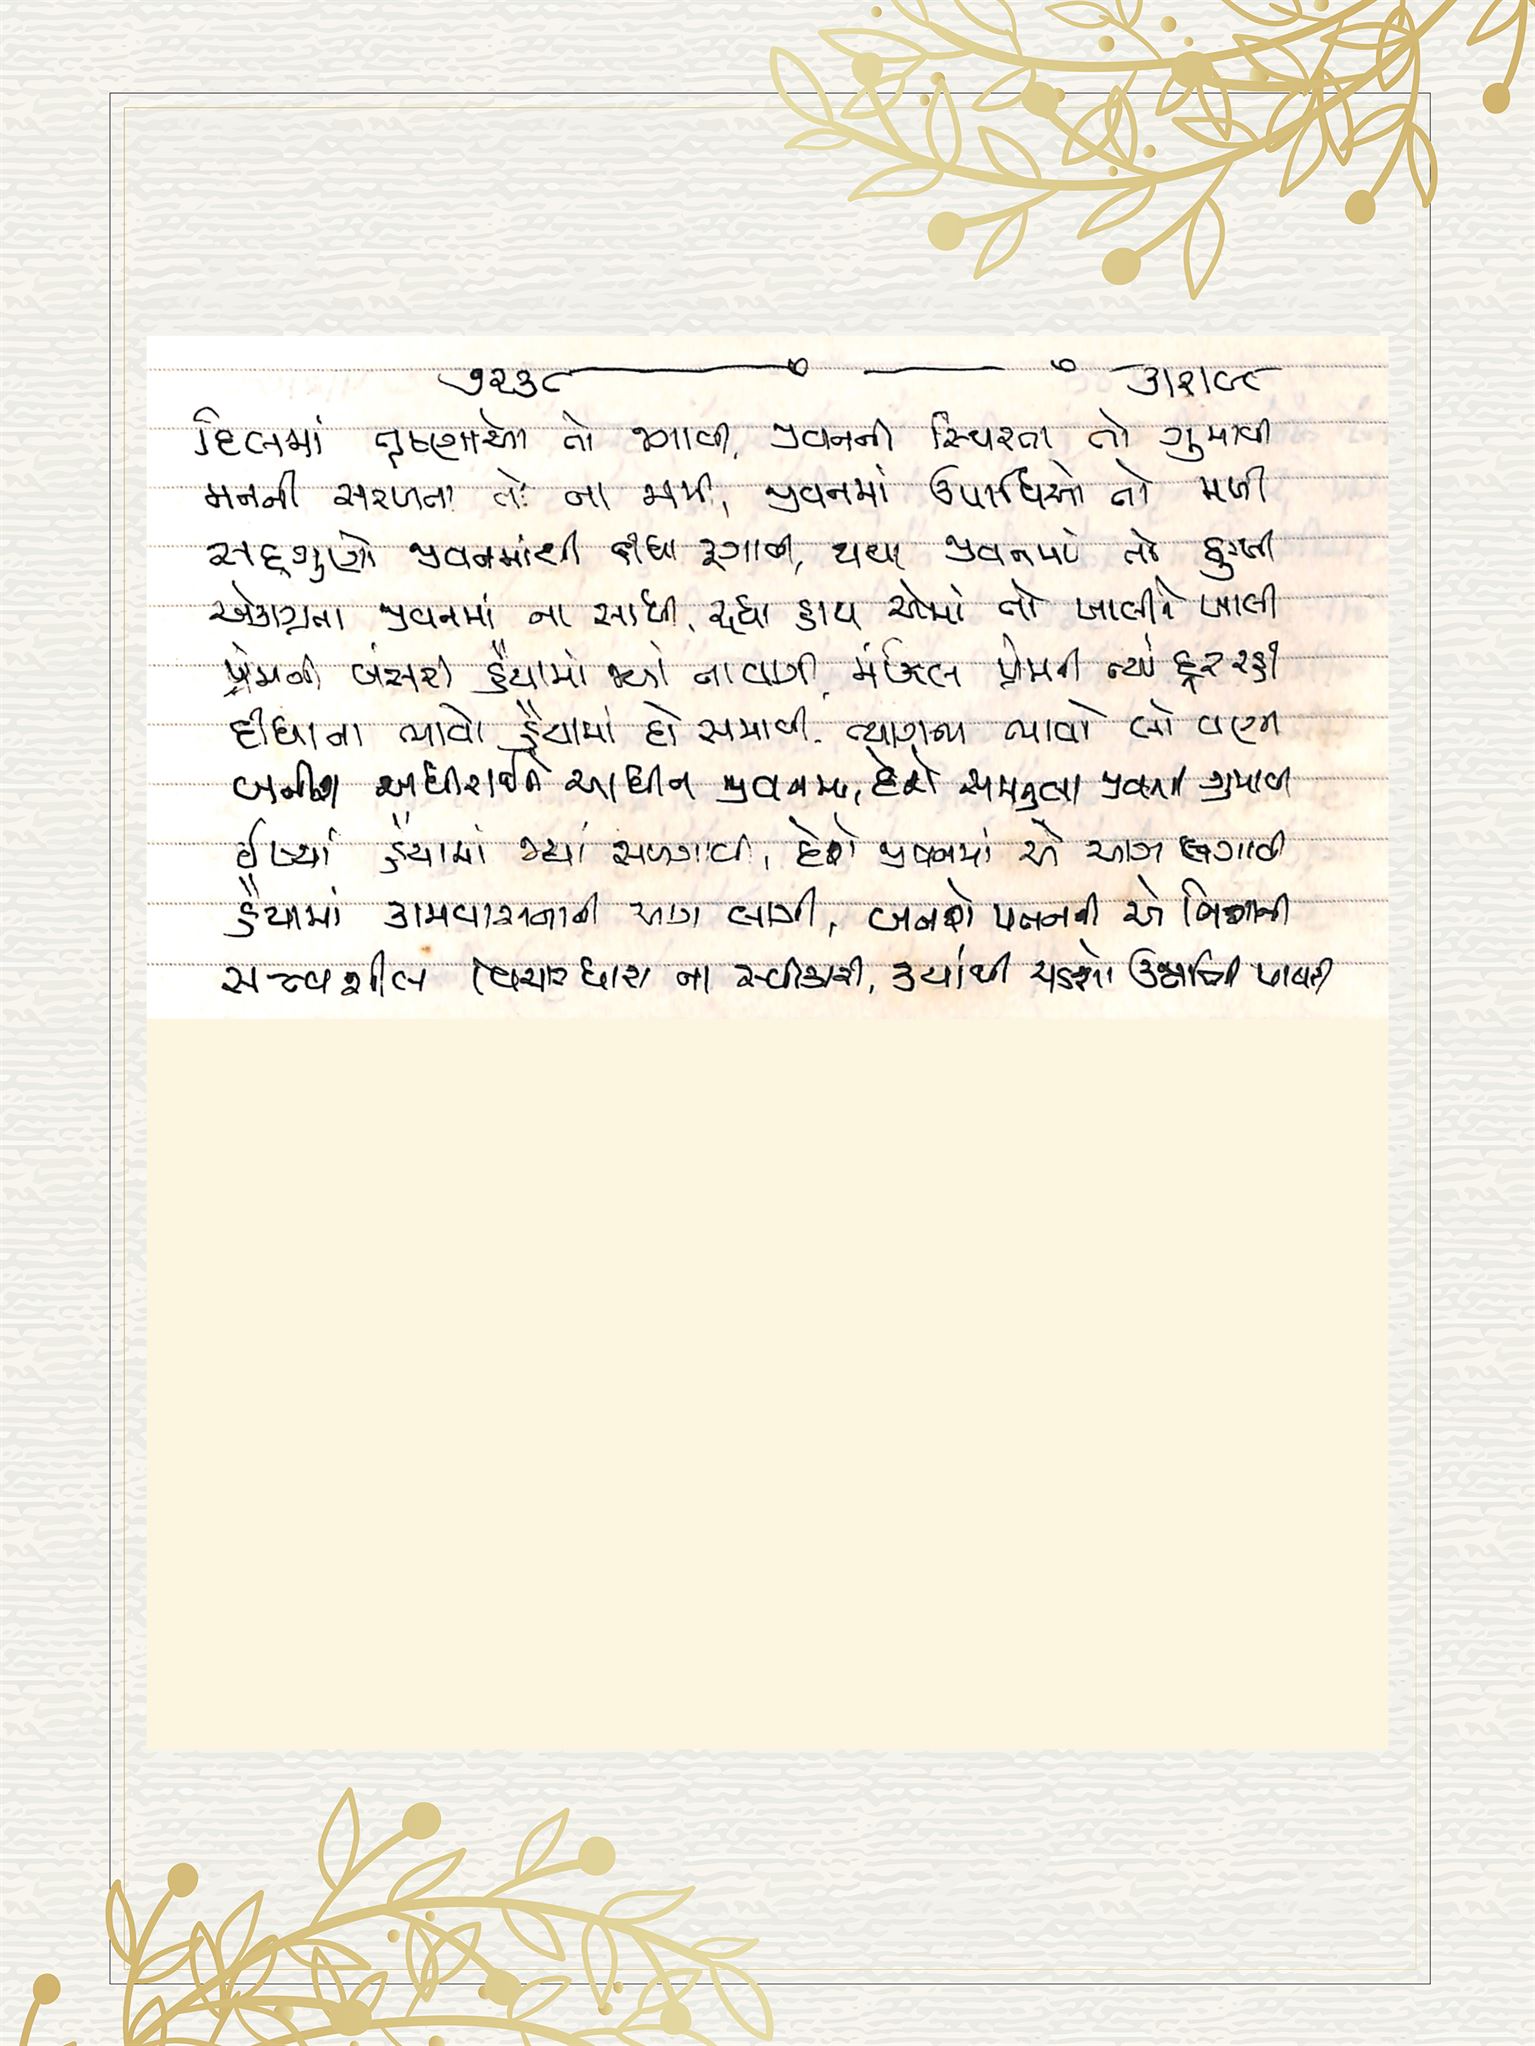 ૧૨૩૮ ૩।૨।૮૯
દિલમાં તૃષ્ણાઓ તો જાગી, જીવનની સ્થિરતા તો ગુમાવી
મનની સરળતા તો ના જામી, જીવનમાં ઉપાધિઓ તો મળી
સદ્દગુણો જીવનમાંથી દીધા ત્યાગી, થયા જીવનમાં તો દુઃખી
એકાગ્રતા જીવનમાં ના સાધી, રહ્યા હાથ એમાં તો ખાલીને ખાલી
પ્રેમની બંસરી હૈયામાં જ્યાં ના વાગી, મંઝિલ પ્રેમની ત્યાં દૂર રહી
દીધા ના ભાવો હૈયામાં હો સમાવી, ત્યાગજે ભાવો લો
બનીશ અધીરાઈને આધીન જીવનમાં, દેશે સમતુલા જીવનની ગુમાવી
ઈર્ષ્યા હૈયામાં જ્યાં સળગાવી, દેશે જીવનમાં એ આગ લગાવી
હૈયામાં કામવાસનાની આગ લાગી, બનશે પતનની એ નિશાની
સત્ત્વશીલ વિચારધારા ના સ્વીકારી, ક્યાંથી ચડશો ઉન્નતિની